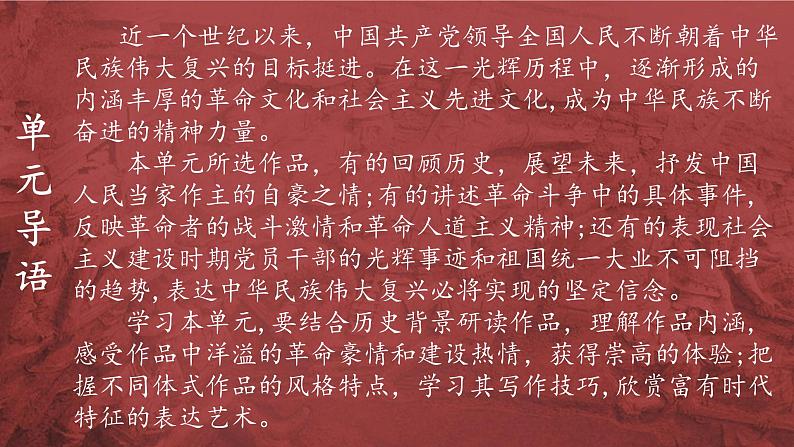 单元导语
近一个世纪以来，中国共产党领导全国人民不断朝着中华
民族伟大复兴的目标挺进。在这一光辉历程中，逐渐形成的
内涵丰厚的革命文化和社会主义先进文化,成为中华民族不断
奋进的精神力量。
本单元所选作品，有的回顾历史，展望未来，抒发中国
人民当家作主的自豪之情;有的讲述革命斗争中的具体事件,
反映革命者的战斗激情和革命人道主义精神;还有的表现社会
主义建设时期党员干部的光辉事迹和祖国统一大业不可阻挡
的趋势,表达中华民族伟大复兴必将实现的坚定信念。
学习本单元,要结合历史背景研读作品，理解作品内涵,
感受作品中洋溢的革命豪情和建设热情，获得崇高的体验;把
握不同体式作品的风格特点，学习其写作技巧,欣赏富有时代
特征的表达艺术。